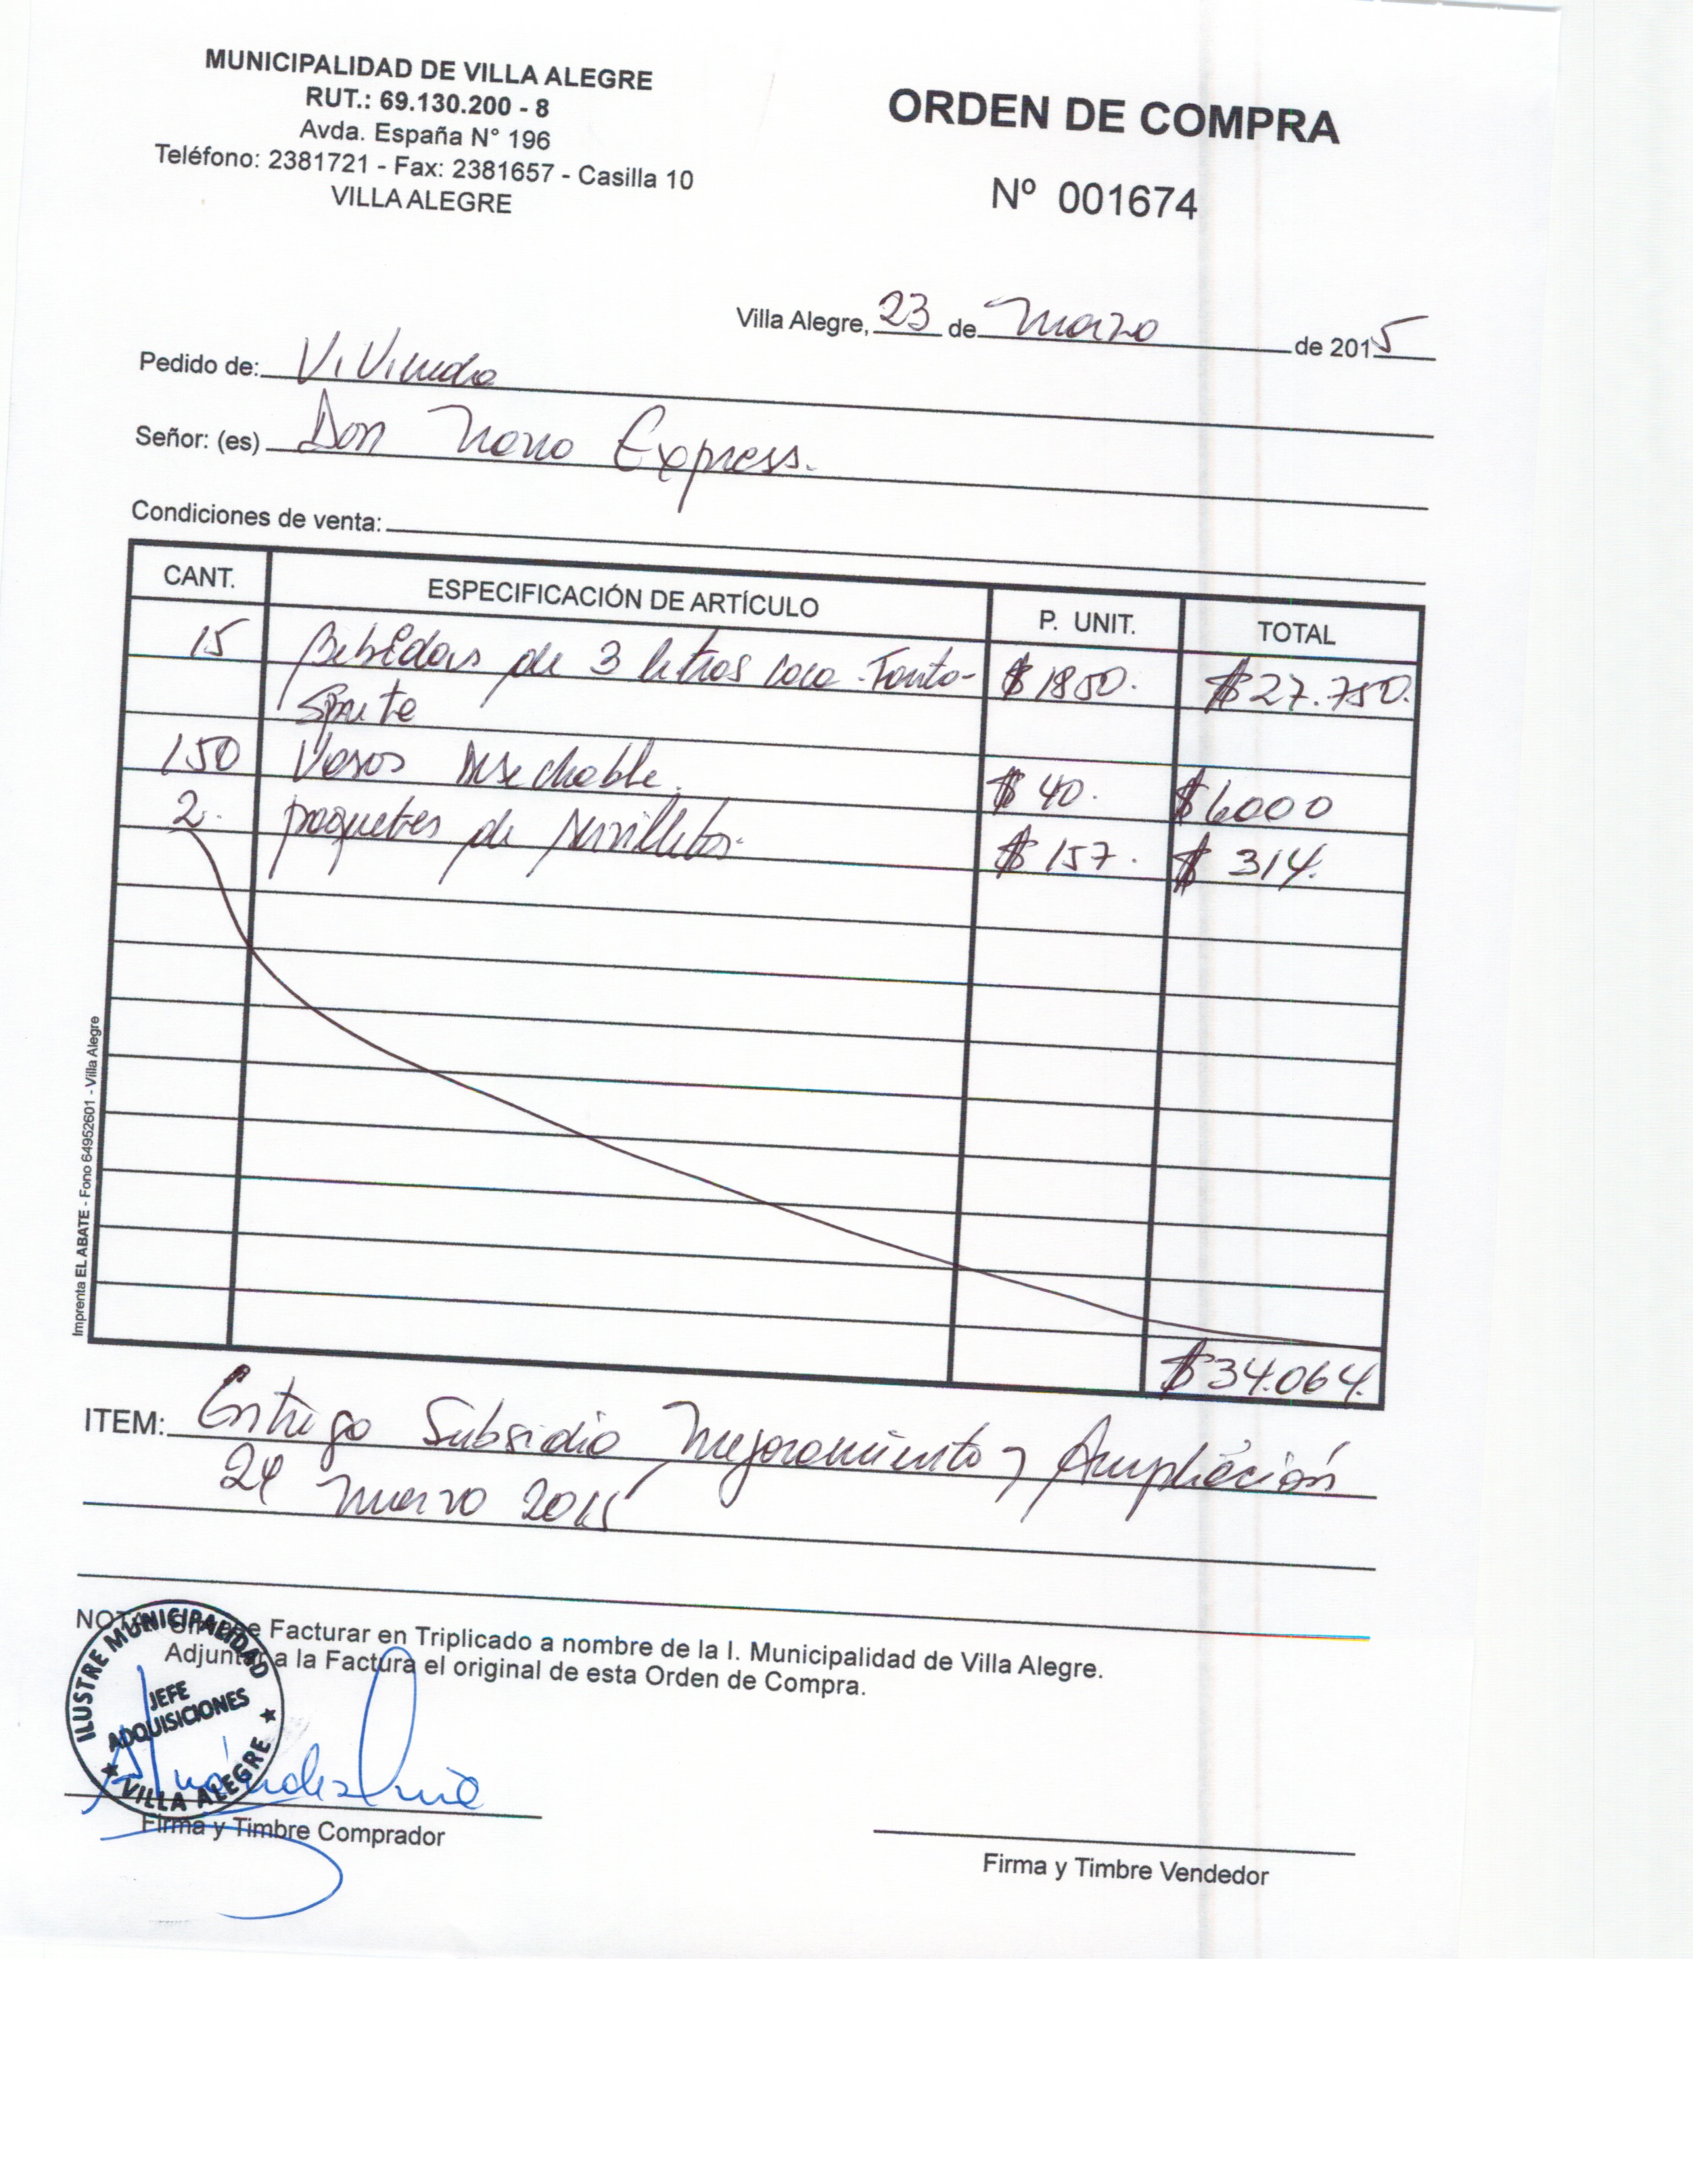 MUNICIPALIDAD DE VILLA ALEGRE
RUT.: 69.130.200 - 8
Avda. España N° 196
Teléfono: 2381721 - Fax: 2381657 - Casilla 10
VILLA ALEGRE
ORDEN DE COMPRA
Nº 001674
Villa Alegre, 23 de Marzo de 2015
Pedido de: Vivienda
Señor: (es) Don Nono Express.
Condiciones de venta:
CANT. ESPECIFICACIÓN DE ARTÍCULO P. UNIT. TOTAL
15 Bebidas de 3 litros coca - Fanta - $1850. $27.750.
Sprite
150 Vasos desechable. $40. $6000
2. paquetes de servilletas. $157. $314.
$34.064.
ITEM: Entrega Subsidio Mejoramiento y Ampliación
24 marzo 2015
NOTA: Facturar en Triplicado a nombre de la I. Municipalidad de Villa Alegre.
Adjuntar a la Factura el original de esta Orden de Compra.
ILUSTRE MUNICIPALIDAD
JEFE
ADQUISICIONES
★ VILLA ALEGRE ★
Firma y Timbre Comprador
Firma y Timbre Vendedor
Imprenta EL ABATE - Fono 64952601 - Villa Alegre